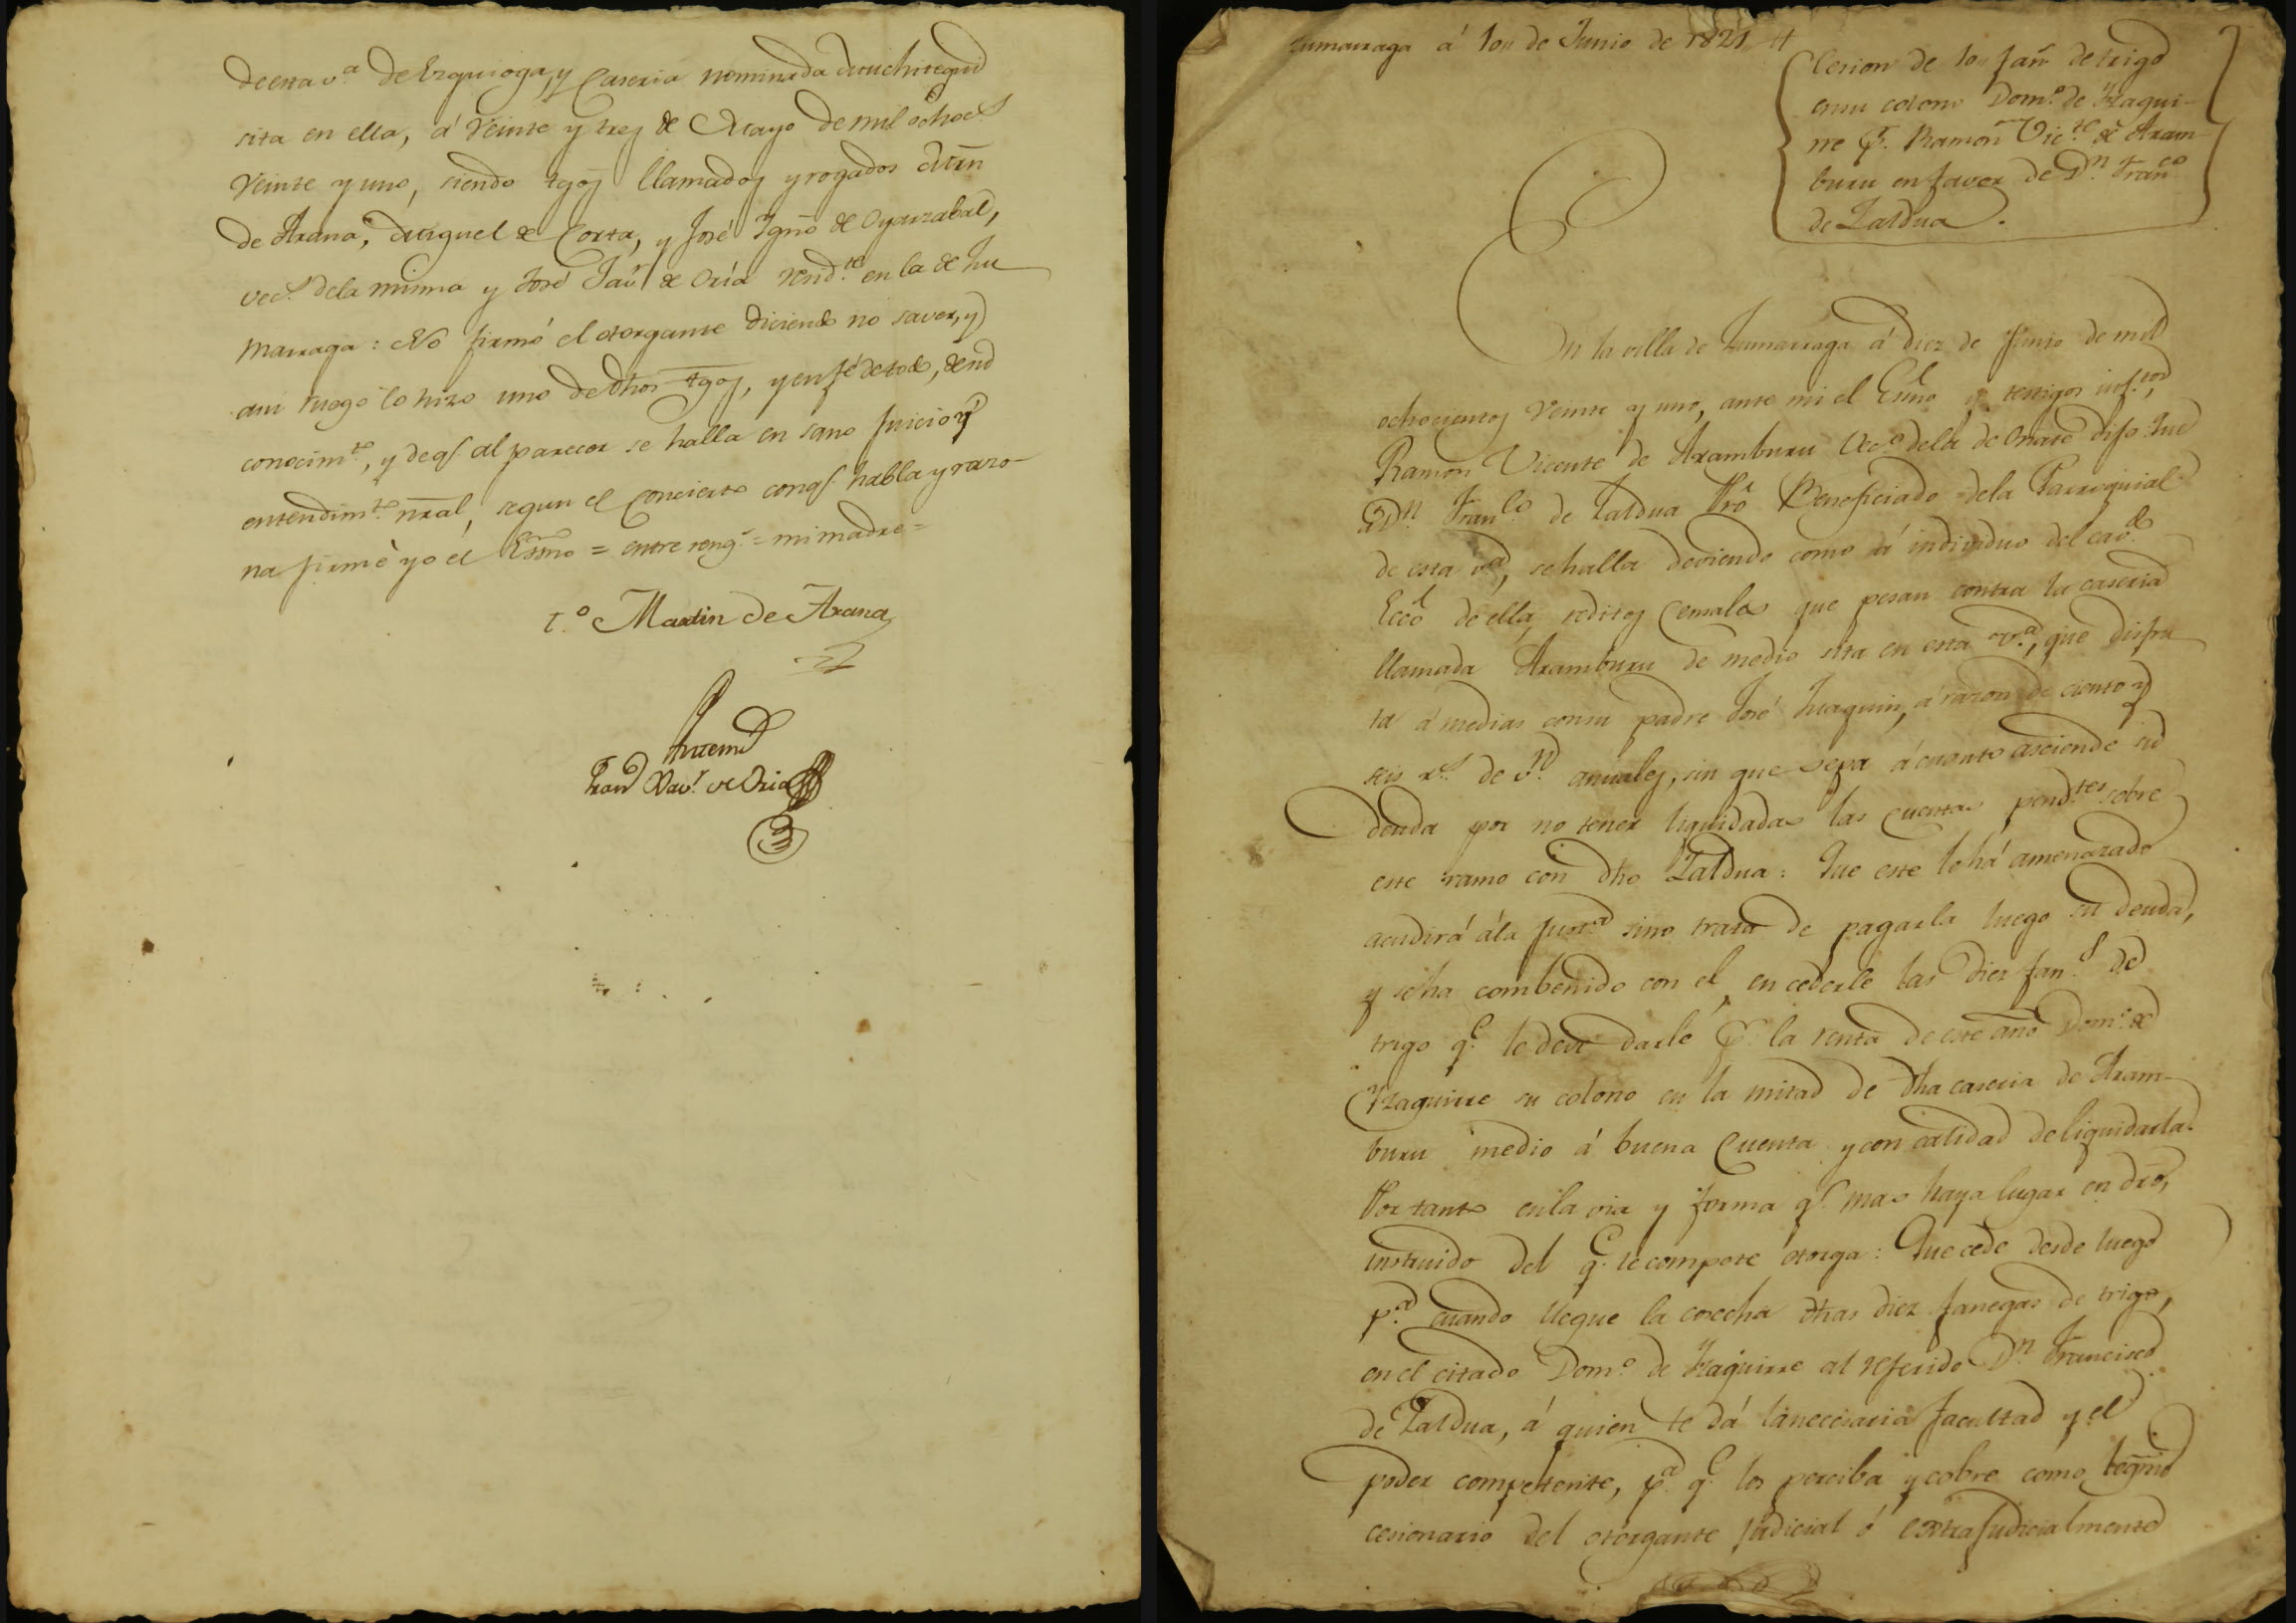 de esta v.ª de Ezquioga, y Caseria nominada
sita en ella, á Veinte y tres de Mayo de mil ochoc.s
Veinte y uno, siendo tgos llamados y rogados Mrn
de Arana, Miguel de Corta, y José Igno de Oyarzabal,
vec.s dela misma y José Jav.r de Oria resid.te en la de Zu
marraga: No firmó el otorgante diciendo no saver, y
a su ruego lo hizo uno de dhos tgos, y en fé de todo, de su
conocim.to, y de q.e al parecer se halla en sano Juicio y
entendim.to nral, segun el Concierto con q.e habla y razo-
na firmé yo el Essno = entre reng.s = mi madre =
t.o Martin de Arana
Antemi
Fran.co Xav.r de Oria
Zumarraga á 10,, de Junio de 1821
Cesion de 10,, fan.s de trigo
en su colono Dom.o de Yzagui-
rre p.r Ramon Vic.te de Aram-
buru en favor de D.n Fran.co
de Zaldua.
En la villa de Zumarraga á diez de Junio de mil
ochocientos Veinte y uno, ante mi el Esno y testigos inf.tos
Ramon Vicente de Aramburu Vec.o dela de Oñate dijo: Que
á D.n Fran.co de Zaldua Pro Beneficiado dela Parroquial
de esta v.a, se halla deviendo como á individuo del cav.do
Ecco de ella, reditos Censales que pesan contra la caseria
llamada Aramburu de medio sita en esta v.a, que disfru
ta á medias con su padre José Juaquin, á razon de ciento y
seis r.s de v.n anuales, sin que sepa á cuanto asciende su
deuda por no tener liquidadas las Cuentas pend.tes sobre
este ramo con dho Zaldua: Que este le há amenazado
acudirá á la Just.a sino trata de pagarla luego su deuda,
y se ha combenido con el, en cederle las diez fan.s de
trigo q.e le deve darle p.r la renta de este año Dom.o de
Yzaguirre su colono en la mitad de dha caseria de Aram-
buru medio á buena Cuenta y con calidad de liquidarla.
Por tanto en la via y forma q.e mas haya lugar en dro,
instruido del q.e le compete otorga: Que cede desde luego
p.a cuando llegue la cosecha dhas diez fanegas de trigo,
en el citado Dom.o de Yzaguirre al referido D.n Francisco
de Zaldua, á quien le dá la necesaria facultad y el
poder competente, p.a q.e los perciba y cobre como legmo
cesionario del otorgante judicial ó extrajudicialmente